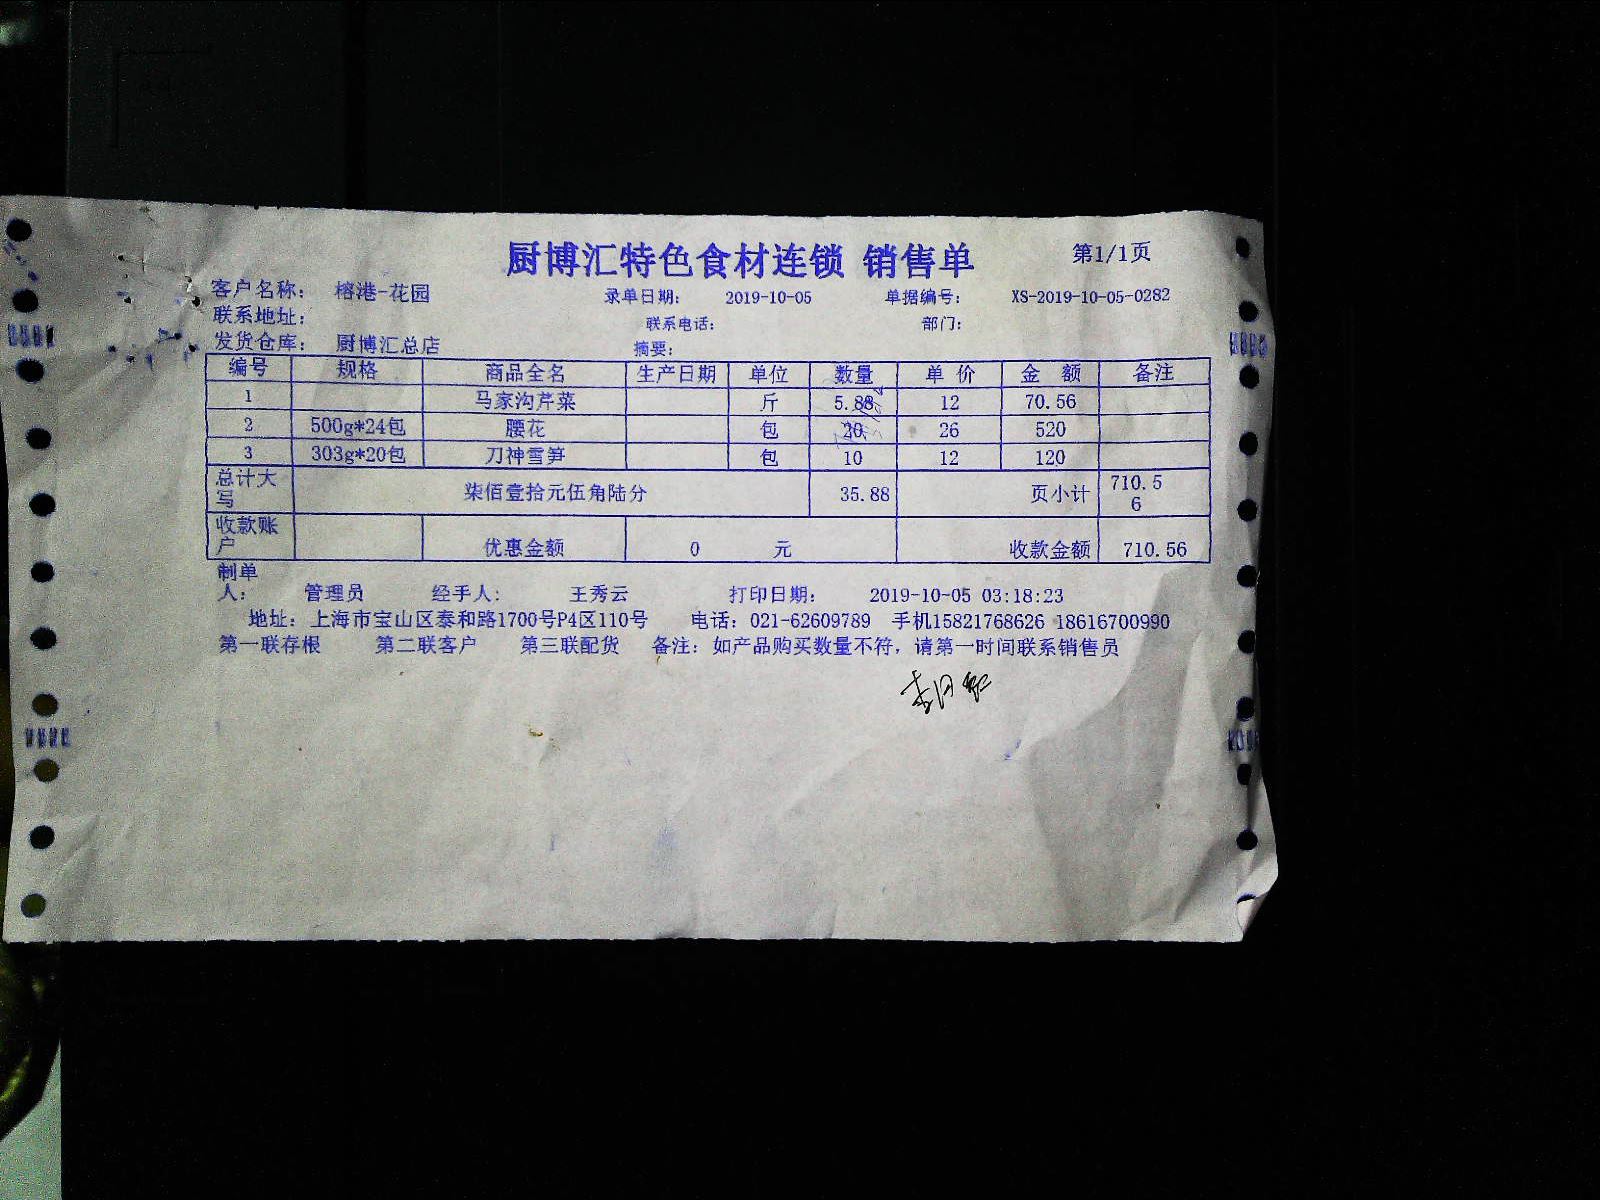 厨博汇特色食材连锁 销售单 第1/1页
客户名称： 榕港-花园 录单日期： 2019-10-05 单据编号： XS-2019-10-05-0282
联系地址： 联系电话： 部门：
发货仓库： 厨博汇总店 摘要：
编号 规格 商品全名 生产日期 单位 数量 单 价 金 额 备注
1 马家沟芹菜 斤 5.88 12 70.56
2 500g*24包 腰花 包 20 26 520
3 303g*20包 刀神雪笋 包 10 12 120
总计大写 柒佰壹拾元伍角陆分 35.88 页小计 710.56
收款账户 优惠金额 0 元 收款金额 710.56
制单人： 管理员 经手人： 王秀云 打印日期： 2019-10-05 03:18:23
地址：上海市宝山区泰和路1700号P4区110号 电话：021-62609789 手机15821768626 18616700990
第一联存根 第二联客户 第三联配货 备注：如产品购买数量不符，请第一时间联系销售员